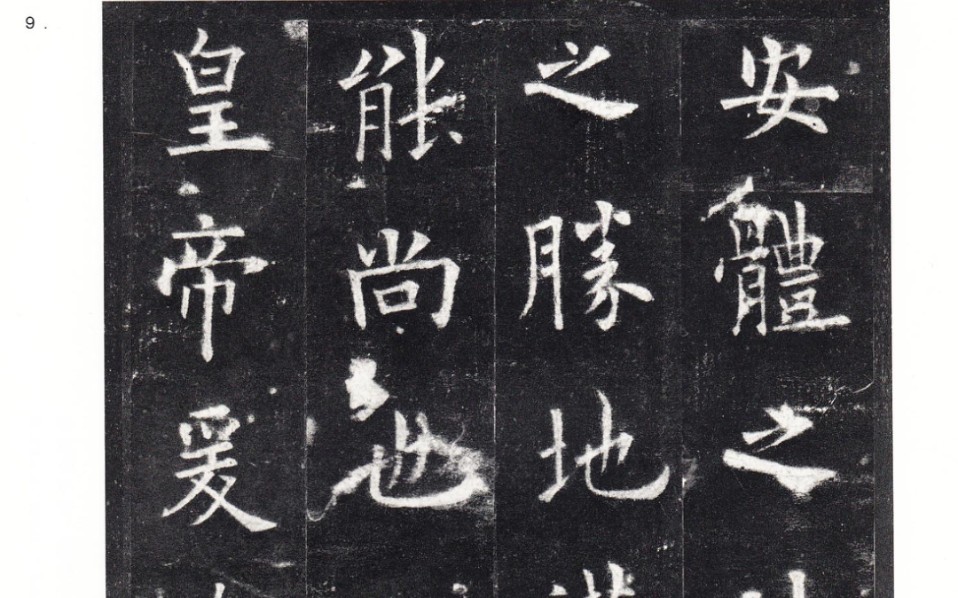 9.
安體之
之勝地
能尚也
皇帝爰